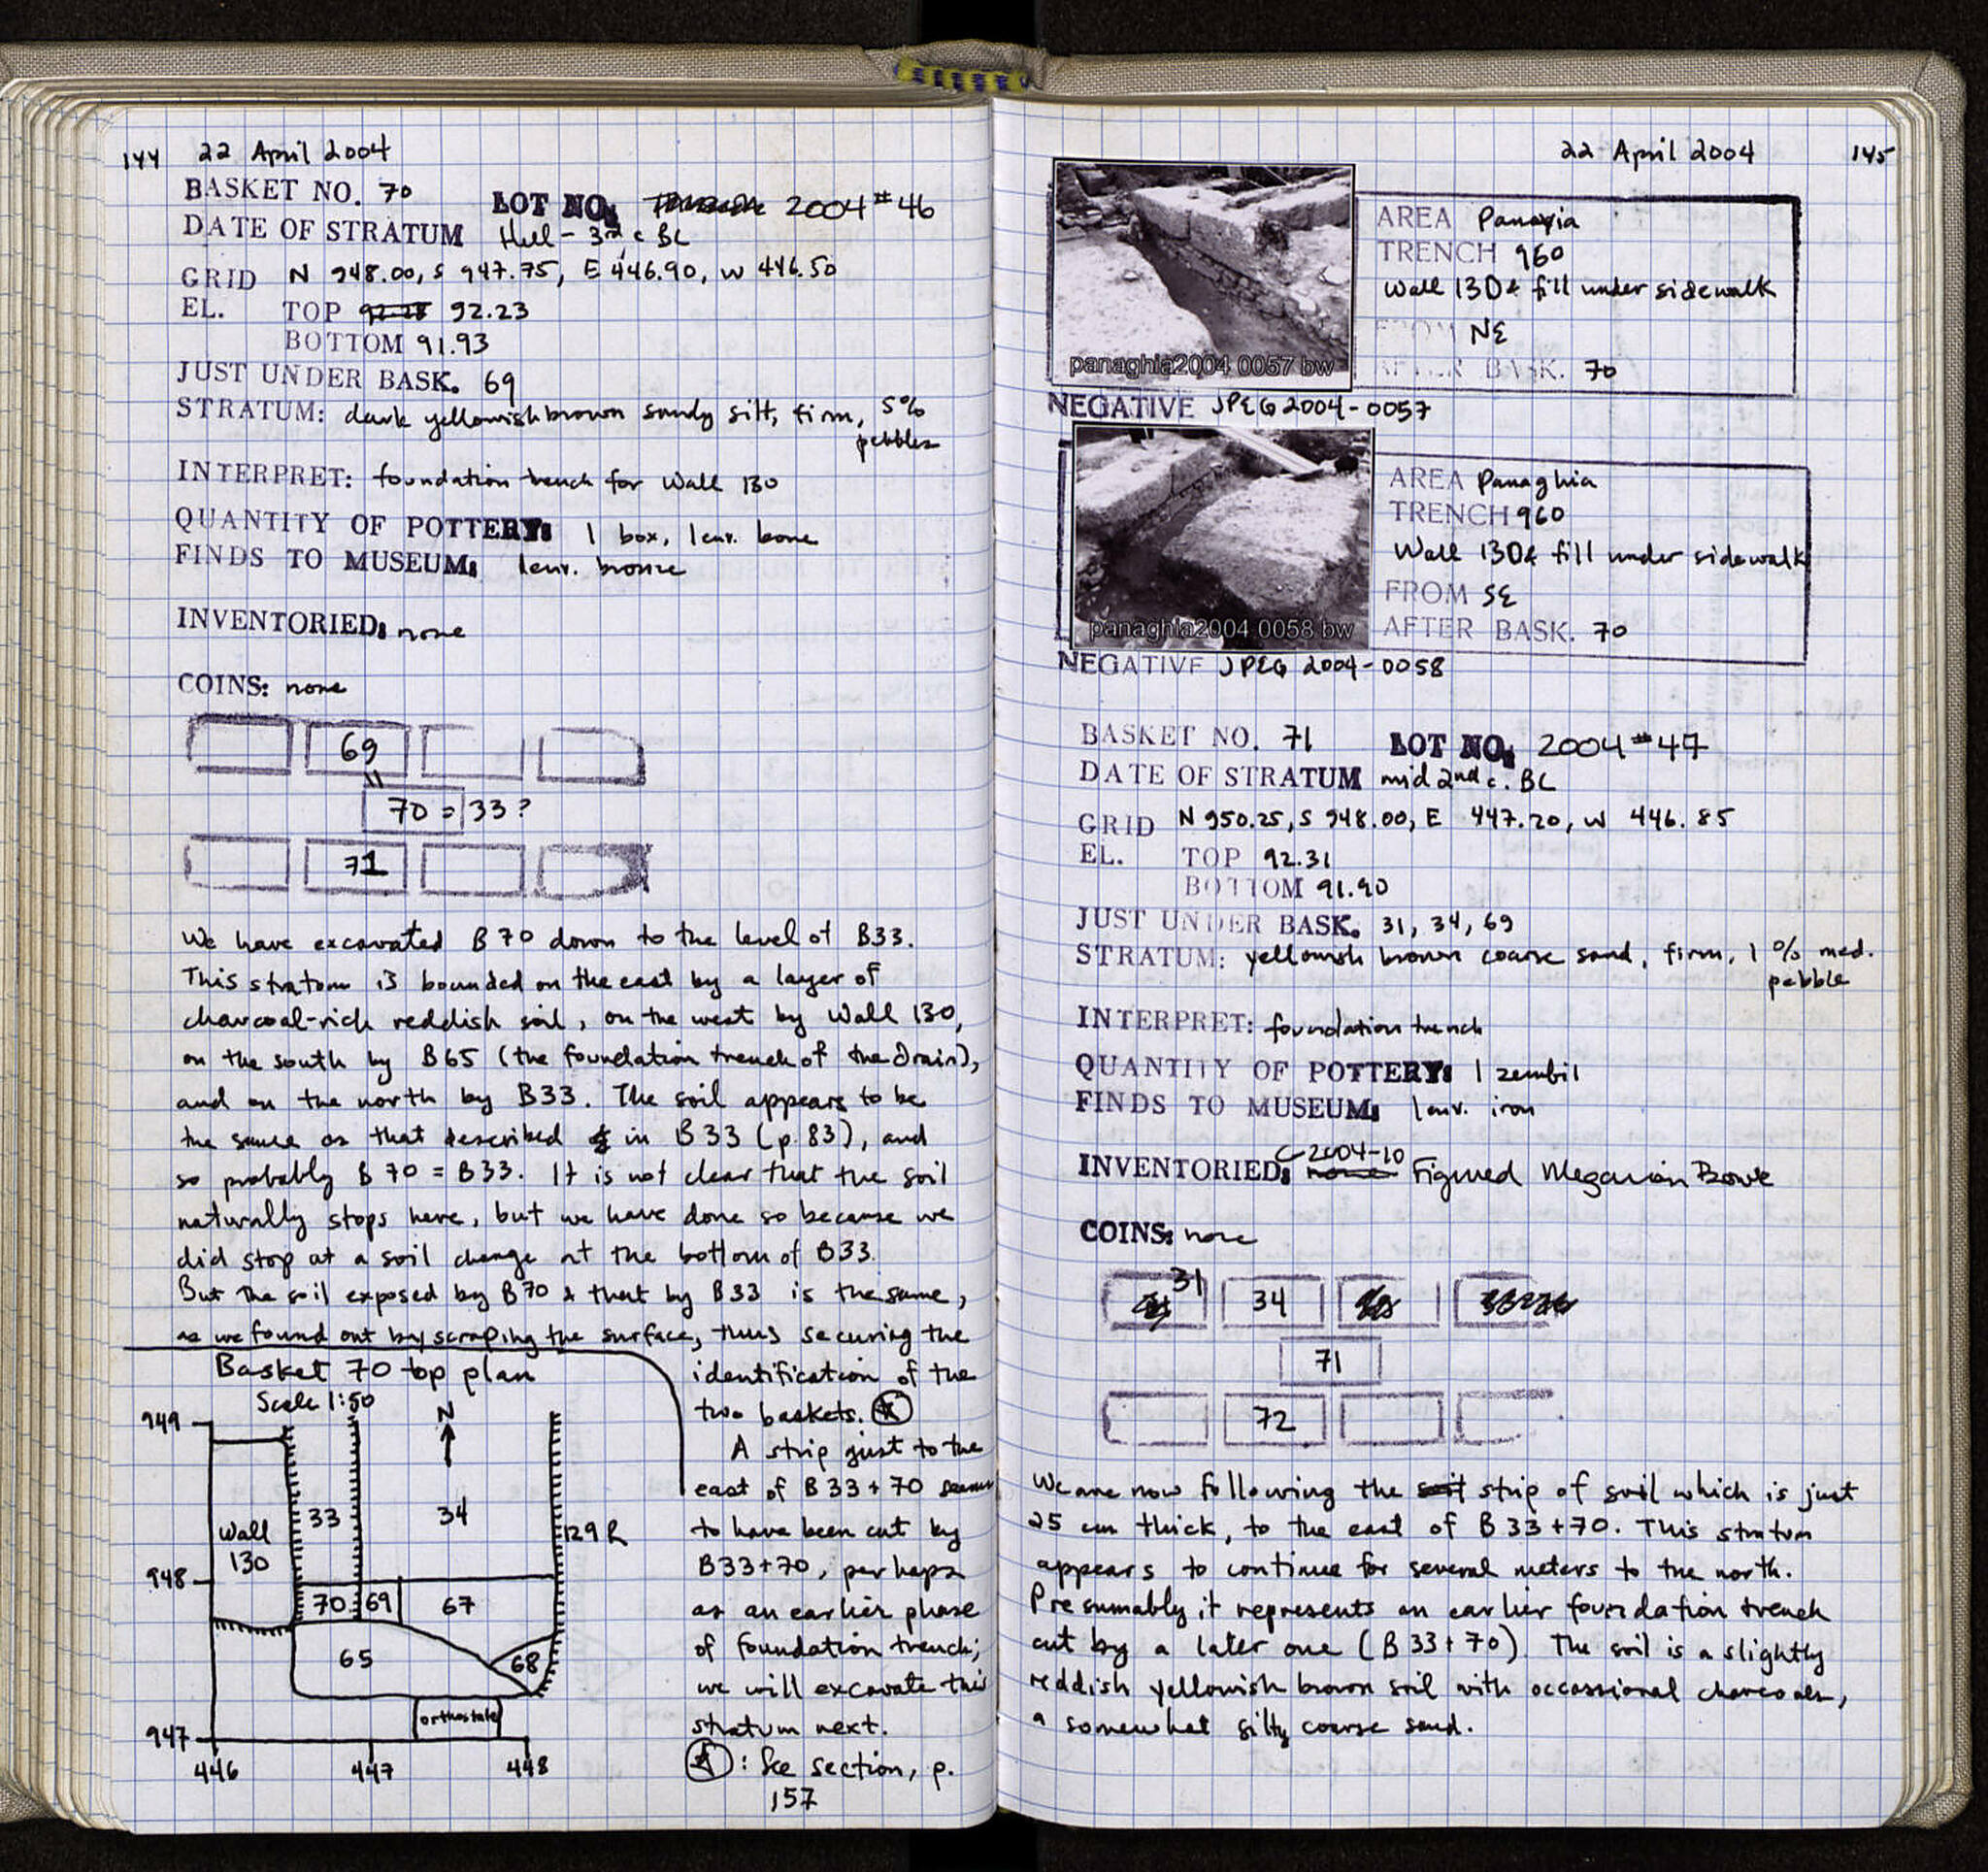 144 22 April 2004
BASKET NO. 70
LOT NO. 2004 #46
DATE OF STRATUM Hell - 3rd c BC
GRID N 948.00, S 947.75, E 446.90, W 446.50
EL. TOP 92.28 92.23
BOTTOM 91.93
JUST UNDER BASK. 69
STRATUM: dark yellowish brown sandy silt, firm, 5%
pebbles
INTERPRET: foundation trench for Wall 130
QUANTITY OF POTTERY: 1 box, 1 env. bone
FINDS TO MUSEUM: 1 env. bronze
INVENTORIED: none
COINS: none
69
"
70 = 33?
71
We have excavated B70 down to the level of B33.
This stratum is bounded on the east by a layer of
charcoal-rich reddish soil, on the west by Wall 130,
on the south by B65 (the foundation trench of the drain),
and on the north by B33. The soil appears to be
the same as that described in B33 (p. 83), and
so probably B70 = B33. It is not clear that the soil
naturally stops here, but we have done so because we
did stop at a soil change at the bottom of B33.
But the soil exposed by B70 & that by B33 is the same,
as we found out by scraping the surface, thus securing the
identification of the
two baskets.
A strip just to the
east of B33+70 seems
to have been cut by
B33+70, perhaps
as an earlier phase
of foundation trench;
we will excavate this
stratum next.
: See section, p.
157
Basket 70 top plan
Scale 1:50
N
949
948
947
446 447 448
Wall
130
33
34
129 R
70 69 67
65
68
orthostate
22 April 2004 145
panaghia2004 0057 bw
AREA Panayia
TRENCH 960
Wall 130 & fill under sidewalk
FROM NE
AFTER BASK. 70
NEGATIVE JPEG 2004-0057
panaghia2004 0058 bw
AREA Panaghia
TRENCH 960
Wall 130 & fill under sidewalk
FROM SE
AFTER BASK. 70
NEGATIVE JPEG 2004-0058
BASKET NO. 71
LOT NO. 2004 #47
DATE OF STRATUM mid 2nd c. BC
GRID N 950.25, S 948.00, E 447.20, W 446.85
EL. TOP 92.31
BOTTOM 91.90
JUST UNDER BASK. 31, 34, 69
STRATUM: yellowish brown coarse sand, firm, 1 % med.
pebble
INTERPRET: foundation trench
QUANTITY OF POTTERY: 1 zembil
FINDS TO MUSEUM: 1 env. iron
C-2004-10
INVENTORIED: none Figured Megarian Bowl
COINS: none
31 34
71
72
We are now following the soil strip of soil which is just
25 cm thick, to the east of B33+70. This stratum
appears to continue for several meters to the north.
Presumably it represents an earlier foundation trench
cut by a later one (B33+70). The soil is a slightly
reddish yellowish brown soil with occassional charcoals,
a somewhat silty coarse sand.